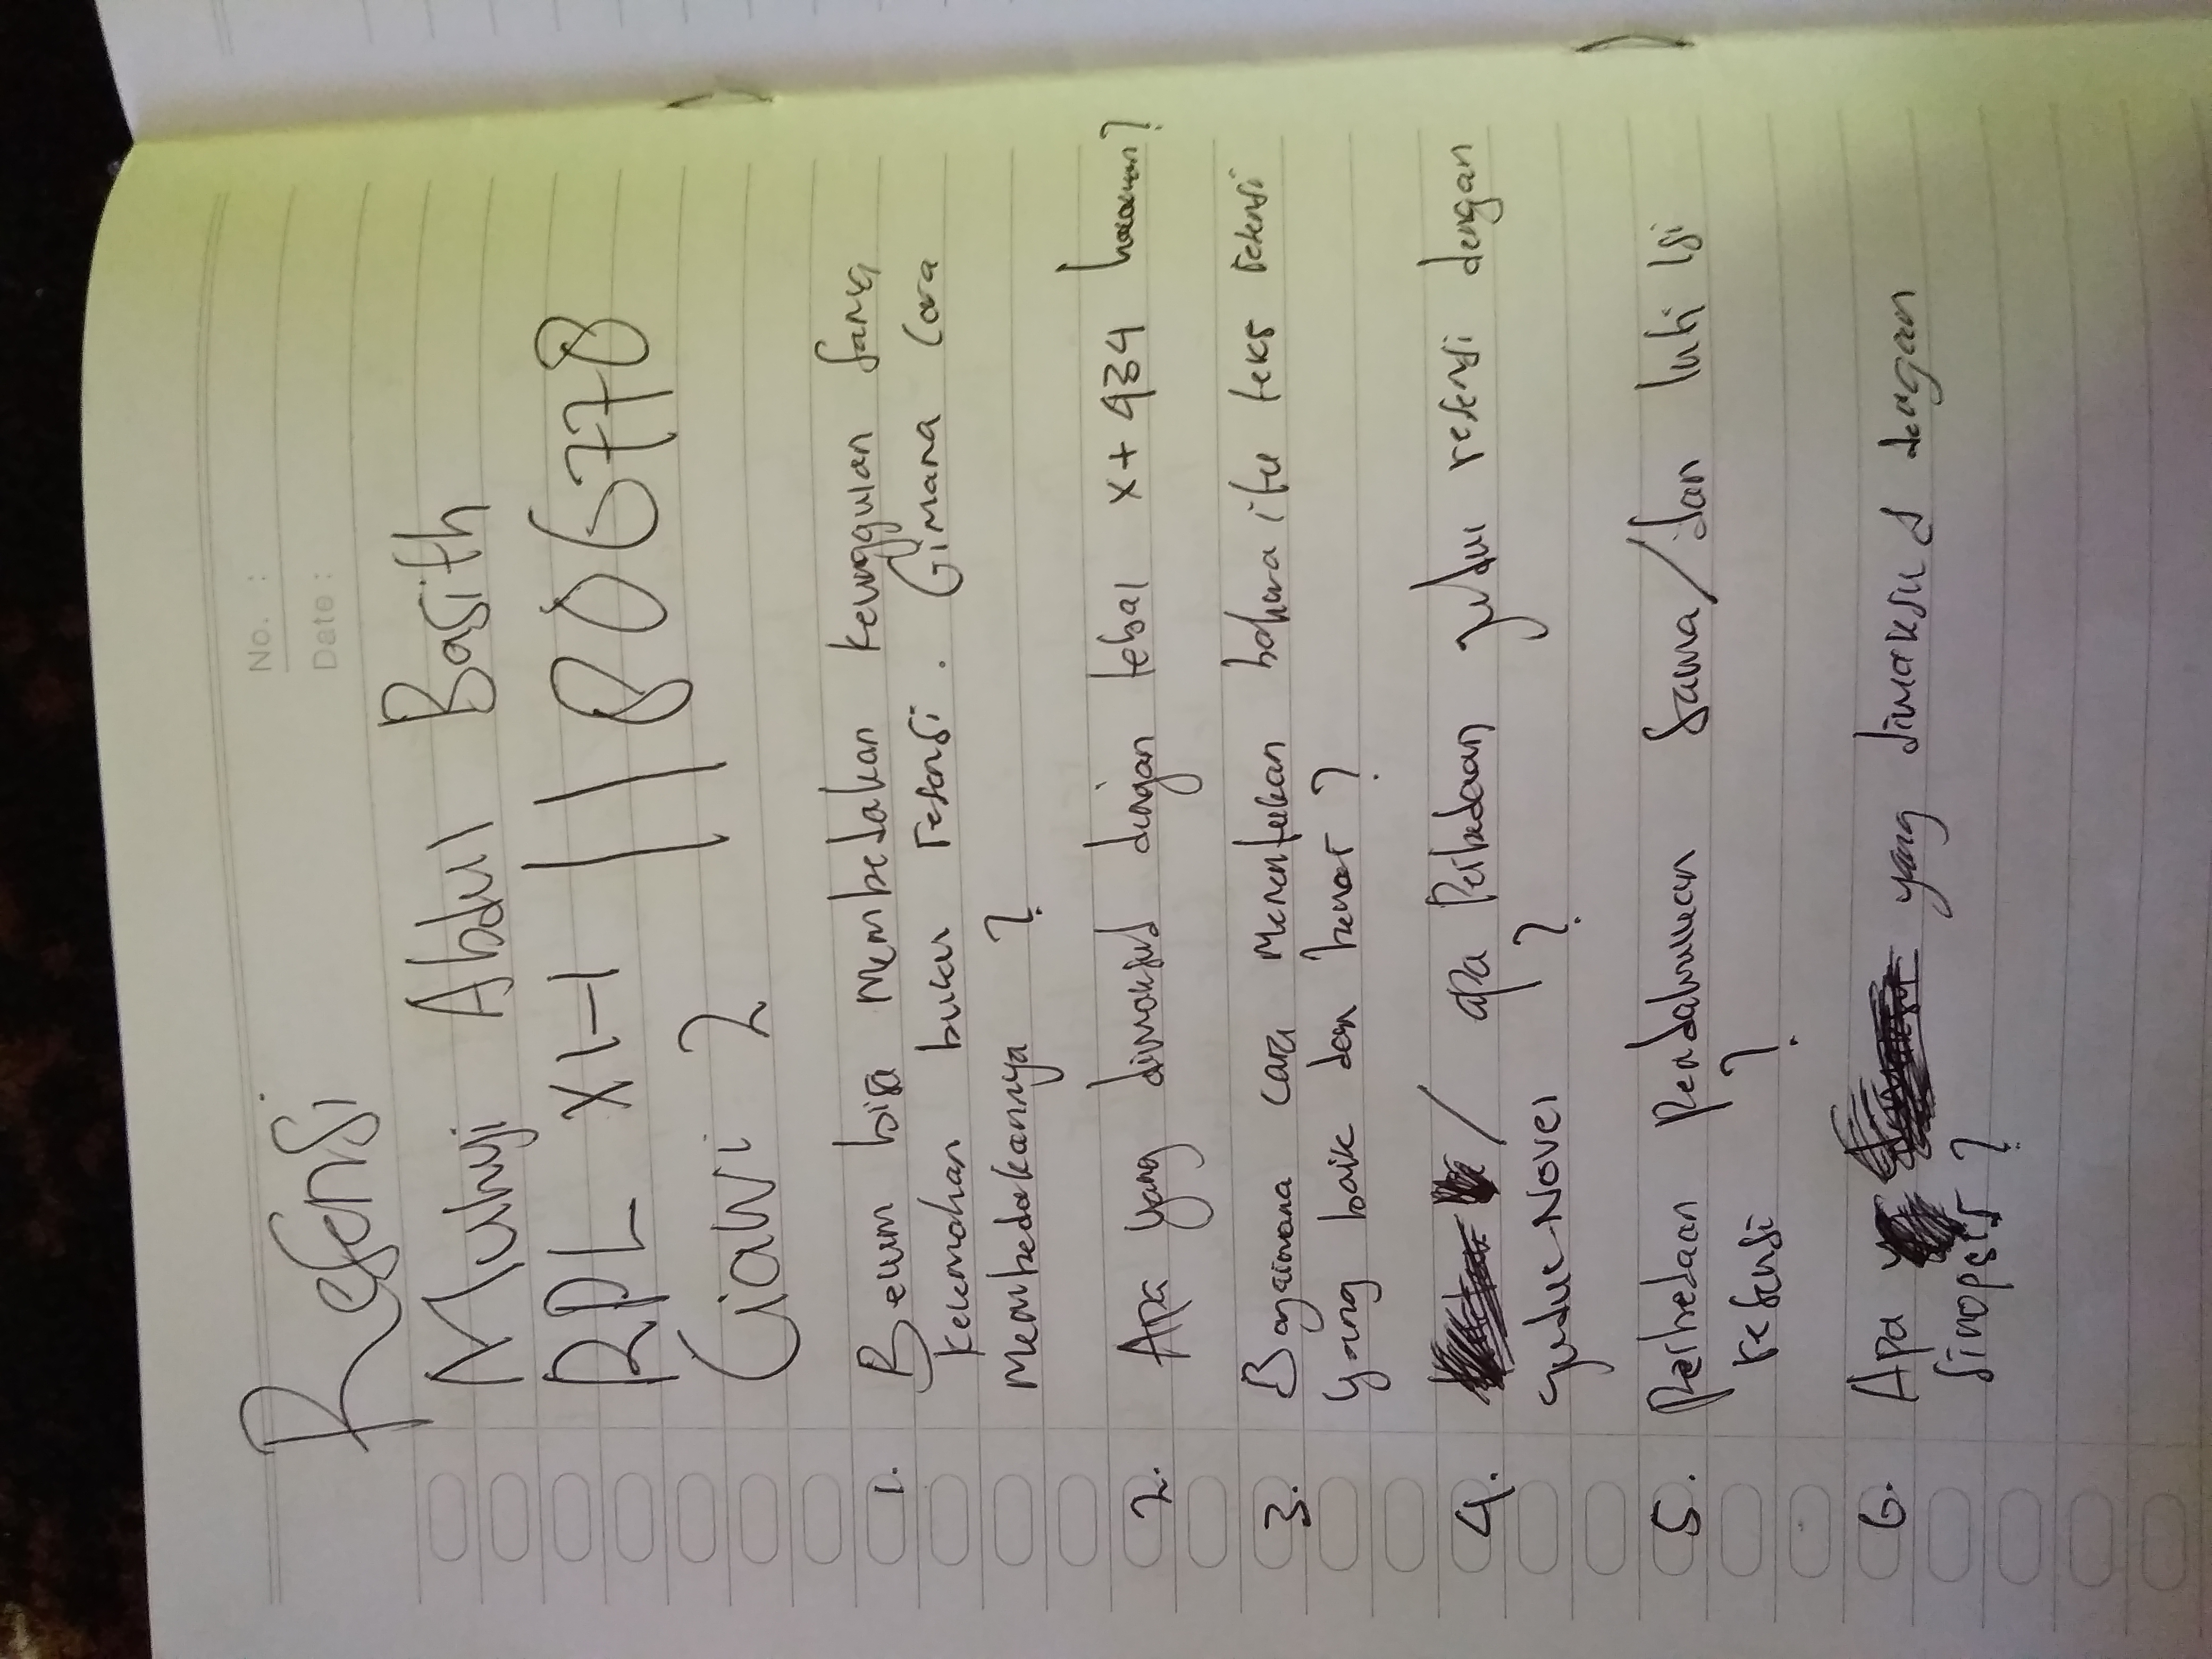 No. :
Date :
Resensi
Muhuji Abdul Basith
RPL XI-1 11806778
Ciawi 2
1. Belum bisa Membedakan keunggulan sama
kelemahan buku resensi. Gimana Cara
Membedakannya ?
2. Apa yang dimaksud dengan tebal x + 434 halaman?
3. Bagaimana cara Menentukan bahwa itu teks resensi
yang baik dan benar ?
4. / apa Perbedaan judul resensi dengan
judul Novel ?
5. Perbedaan Pendahuluan sama/dan Inti Isi
resensi ?
6. Apa yang dimaksud dengan
Sinopsis ?